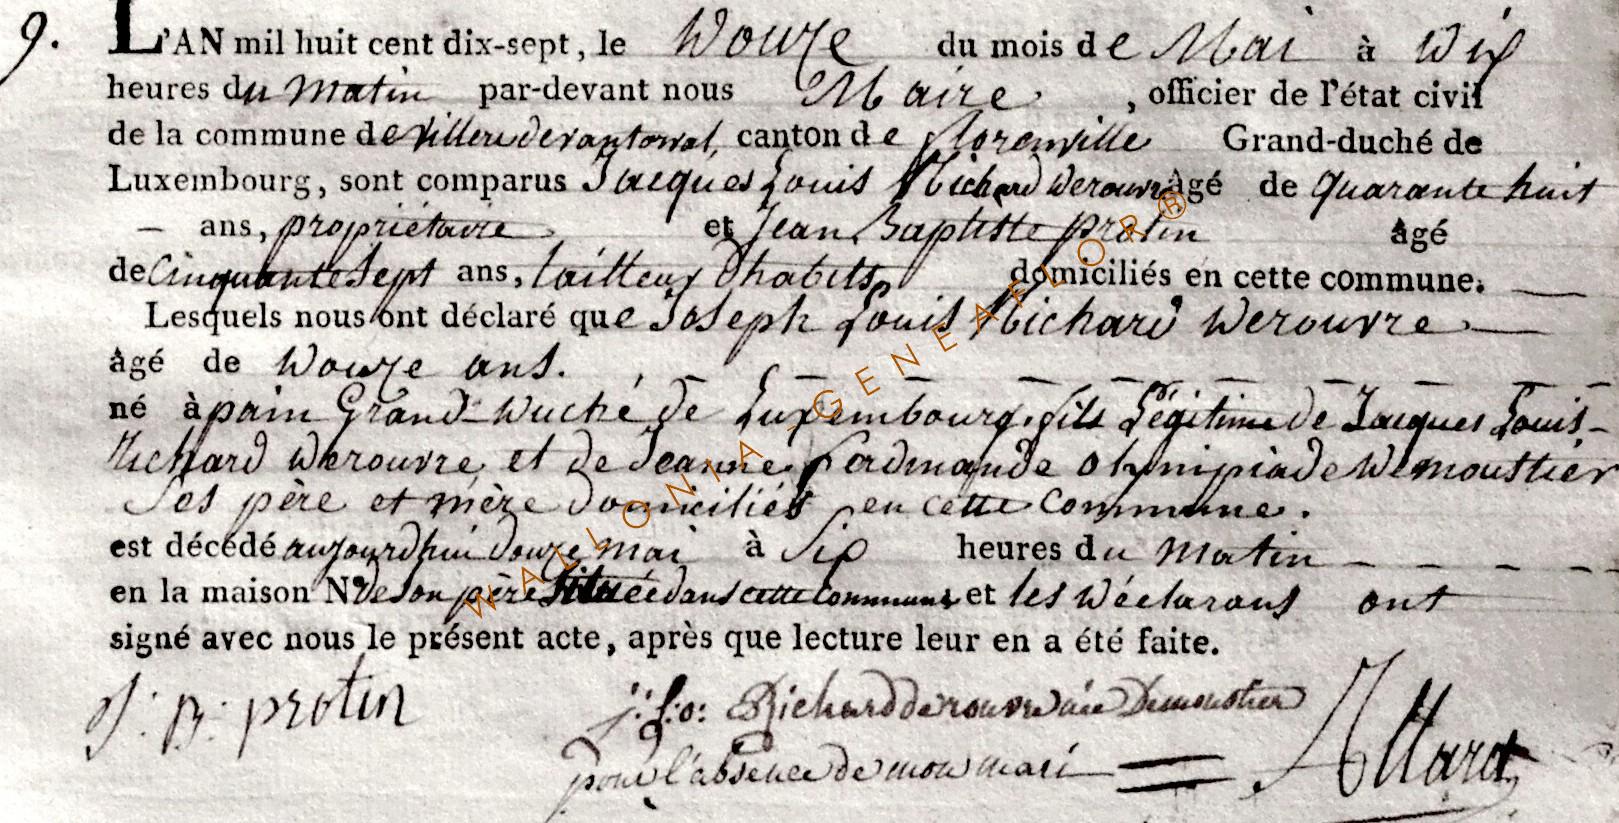 9. L'AN mil huit cent dix-sept, le Douze du mois de Mai à Dix
heures du Matin par-devant nous Maire, officier de l'état civil
de la commune de Villers devant orval, canton de florenville Grand-duché de
Luxembourg, sont comparus Jacques Louis Richard Derouvre âgé de quarante huit
– ans, propriétaire et Jean Baptiste protin âgé
de Cinquante Sept ans, tailleur d'habits, domiciliés en cette commune.
Lesquels nous ont déclaré que Joseph Louis Richard Derouvre
âgé de Douze ans.
né à pain Grand-Duché de Luxembourg. fils Légitime de Jacques Louis-
Richard Derouvre et de Jeanne ferdinande olympiade Demoustier
Ses père et mère Domiciliés en cette Commune.
est décédé aujourd'hui douze mai à Six heures du Matin
en la maison No de Son père Située dans cette Commune et les Déclarans ont
signé avec nous le présent acte, après que lecture leur en a été faite.
J: B: protin
j: f: o: Richard Derouvre née Demoustier
pour l'absence de mon mari
Allard
WALLONIA - GENEAFLOR®